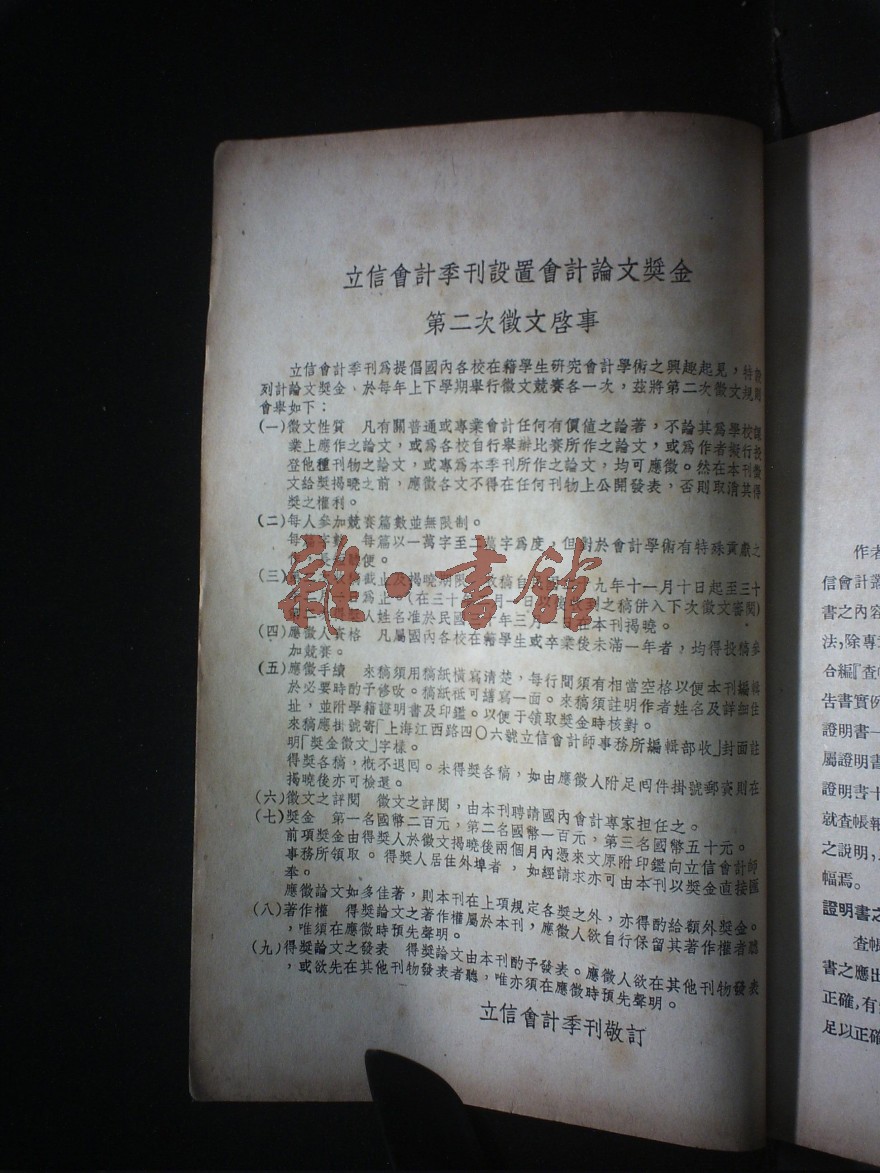 立信會計季刊設置會計論文奬金
第二次徵文啓事
立信會計季刊爲提倡國內各校在籍學生研究會計學術之興趣起見，特設
列計論文奬金，於每年上下學期舉行徵文競賽各一次，茲將第二次徵文規則
會舉如下：
(一)徵文性質　凡有關普通或專業會計任何有價值之論著，不論其爲學校課
業上應作之論文，或爲各校自行舉辦比賽所作之論文，或爲作者擬行投
登他種刊物之論文，或專爲本季刊所作之論文，均可應徵。然在本刊徵
文給奬揭曉之前，應徵各文不得在任何刊物上公開發表，否則取消其得
奬之權利。
(二)每人參加競賽篇數並無限制。
每篇字數　每篇以一萬字至二萬字爲度，但對於會計學術有特殊貢獻之
便。
(三)截止及揭曉期限　收稿自九年十一月十日起至三十
日爲止（在三十月一日以後收到之稿併入下次徵文審閱）
人姓名准於民國年三月在本刊揭曉。
(四)應徵人資格　凡屬國內各校在籍學生或卒業後未滿一年者，均得投稿參
加競賽。
(五)應徵手續　來稿須用稿紙橫寫清楚，每行間須有相當空格以便本刊編輯
於必要時酌予修改。稿紙祗可繕寫一面。來稿須註明作者姓名及詳細住
址，並附學籍證明書及印鑑。以便于領取奬金時核對。
來稿應掛號寄「上海江西路四〇六號立信會計師事務所編輯部收」封面註
明「奬金徵文」字樣。
得奬各稿，槪不退回。未得奬各稿，如由應徵人附足回件掛號郵資則在
揭曉後亦可檢還。
(六)徵文之評閱　徵文之評閱，由本刊聘請國內會計專家担任之。
(七)奬金　第一名國幣二百元，第二名國幣一百元，第三名國幣五十元。
前項奬金由得奬人於徵文揭曉後兩個月內憑來文原附印鑑向立信會計師
事務所領取。得奬人居住外埠者，如經請求亦可由本刊以奬金直接匯
奉。
應徵論文如多佳著，則本刊在上項規定各奬之外，亦得酌給額外奬金。
(八)著作權　得奬論文之著作權屬於本刊，應徵人欲自行保留其著作權者聽
，唯須在應徵時預先聲明。
(九)得奬論文之發表　得奬論文由本刊酌予發表。應徵人欲在其他刊物發表
，或欲先在其他刊物發表者聽，唯亦須在應徵時預先聲明。
立信會計季刊敬訂
雜·書館
作者
信會計叢
書之內容
法，除專
合編『查
告書實例
證明書一
屬證明書
證明書十
就查帳報
之說明，
幅焉。
證明書之
查帳
書之應出
正確，有
足以正確